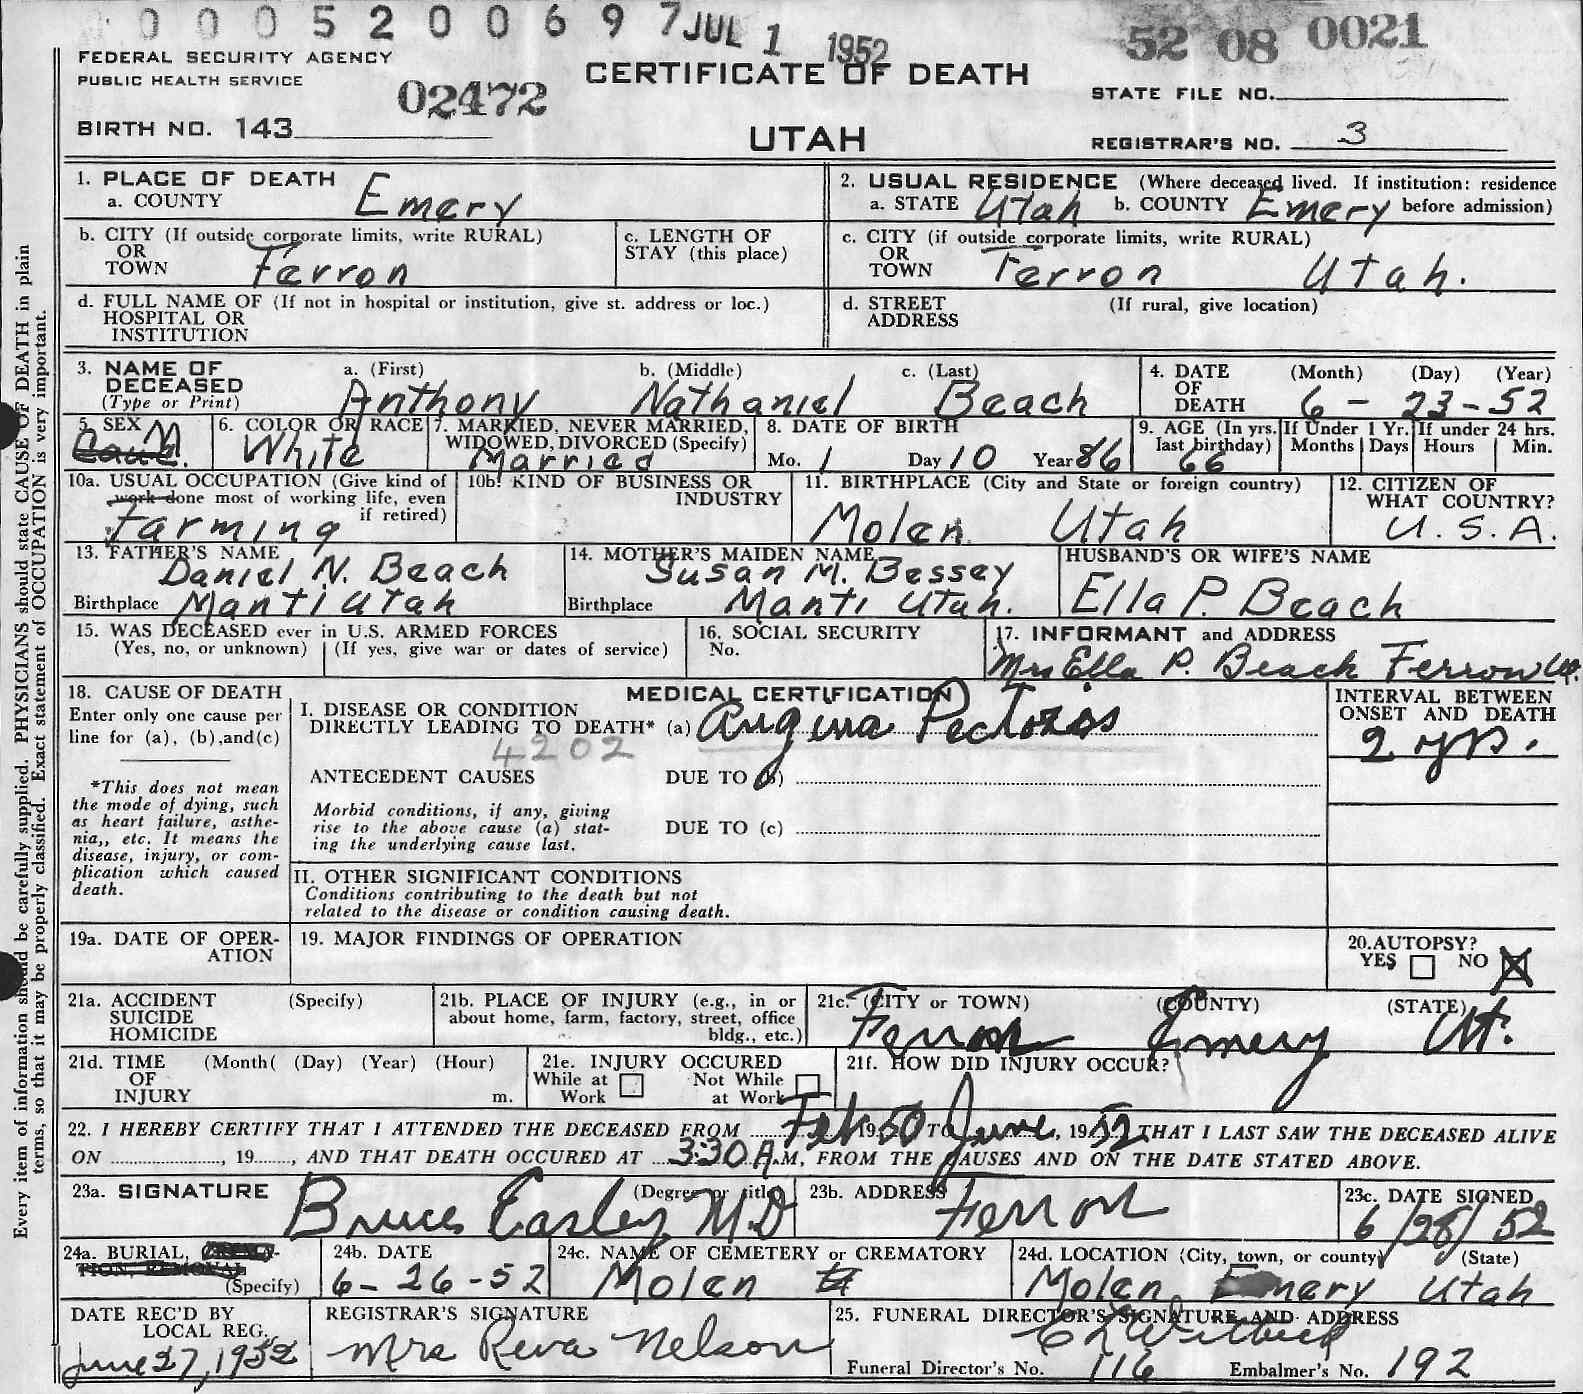 0 0 0 5 2 0 0 6 9 7 JUL 1 1952 52 08 0021
FEDERAL SECURITY AGENCY
PUBLIC HEALTH SERVICE
02472
CERTIFICATE OF DEATH
STATE FILE NO.
BIRTH NO. 143
UTAH
REGISTRAR'S NO. 3
1. PLACE OF DEATH
a. COUNTY Emery
2. USUAL RESIDENCE (Where deceased lived. If institution: residence
a. STATE Utah b. COUNTY Emery before admission)
b. CITY (If outside corporate limits, write RURAL)
OR
TOWN Ferron
c. LENGTH OF
STAY (this place)
c. CITY (if outside corporate limits, write RURAL)
OR
TOWN Ferron Utah.
d. FULL NAME OF (If not in hospital or institution, give st. address or loc.)
HOSPITAL OR
INSTITUTION
d. STREET (If rural, give location)
ADDRESS
3. NAME OF
DECEASED
(Type or Print)
a. (First) b. (Middle) c. (Last)
Anthony Nathaniel Beach
4. DATE (Month) (Day) (Year)
OF
DEATH 6 - 23 - 52
5. SEX M
Cauc.
6. COLOR OR RACE
White
7. MARRIED, NEVER MARRIED,
WIDOWED, DIVORCED (Specify)
Married
8. DATE OF BIRTH
Mo. 1 Day 10 Year 86
9. AGE (In yrs.
last birthday)
66
If Under 1 Yr.
Months Days
If under 24 hrs.
Hours Min.
10a. USUAL OCCUPATION (Give kind of
work done most of working life, even
if retired)
Farming
10b. KIND OF BUSINESS OR
INDUSTRY
11. BIRTHPLACE (City and State or foreign country)
Molen Utah
12. CITIZEN OF
WHAT COUNTRY?
U.S.A.
13. FATHER'S NAME
Daniel N. Beach
Birthplace Manti Utah
14. MOTHER'S MAIDEN NAME
Susan M. Bessey
Birthplace Manti Utah.
HUSBAND'S OR WIFE'S NAME
Ella P. Beach
15. WAS DECEASED ever in U.S. ARMED FORCES
(Yes, no, or unknown) (If yes, give war or dates of service)
16. SOCIAL SECURITY
No.
17. INFORMANT and ADDRESS
Mrs Ella P. Beach Ferron Ut.
18. CAUSE OF DEATH
Enter only one cause per
line for (a), (b),and(c)
*This does not mean
the mode of dying, such
as heart failure, asthe-
nia,, etc. It means the
disease, injury, or com-
plication which caused
death.
MEDICAL CERTIFICATION
I. DISEASE OR CONDITION
DIRECTLY LEADING TO DEATH* (a) Angina Pectoris
4202
ANTECEDENT CAUSES DUE TO (b)
Morbid conditions, if any, giving
rise to the above cause (a) stat-
ing the underlying cause last.
DUE TO (c)
II. OTHER SIGNIFICANT CONDITIONS
Conditions contributing to the death but not
related to the disease or condition causing death.
INTERVAL BETWEEN
ONSET AND DEATH
2 yrs.
19a. DATE OF OPER-
ATION
19. MAJOR FINDINGS OF OPERATION
20. AUTOPSY?
YES NO X
21a. ACCIDENT (Specify)
SUICIDE
HOMICIDE
21b. PLACE OF INJURY (e.g., in or
about home, farm, factory, street, office
bldg., etc.)
21c. (CITY or TOWN) (COUNTY) (STATE)
Ferron Emery Ut.
21d. TIME (Month( (Day) (Year) (Hour)
OF
INJURY m.
21e. INJURY OCCURED
While at Work Not While at Work
21f. HOW DID INJURY OCCUR?
22. I HEREBY CERTIFY THAT I ATTENDED THE DECEASED FROM Feb 1950 TO June, 1952 THAT I LAST SAW THE DECEASED ALIVE
ON , 19 , AND THAT DEATH OCCURED AT 3:30 A.M, FROM THE CAUSES AND ON THE DATE STATED ABOVE.
23a. SIGNATURE (Degree or title)
Bruce Easley MD
23b. ADDRESS
Ferron
23c. DATE SIGNED
6/28/52
24a. BURIAL, CREMA-
TION, REMOVAL
(Specify)
24b. DATE
6-26-52
24c. NAME OF CEMETERY or CREMATORY
Molen
24d. LOCATION (City, town, or county) (State)
Molen Emery Utah
DATE REC'D BY
LOCAL REG.
June 27, 1952
REGISTRAR'S SIGNATURE
Mrs Reva Nelson
25. FUNERAL DIRECTOR'S SIGNATURE AND ADDRESS
Funeral Director's No. 116 Embalmer's No. 192
Every item of information should be carefully supplied. PHYSICIANS should state CAUSE OF DEATH in plain
terms, so that it may be properly classified. Exact statement of OCCUPATION is very important.